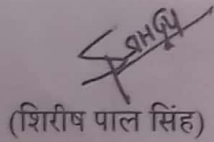 (शिरीष पाल सिंह)